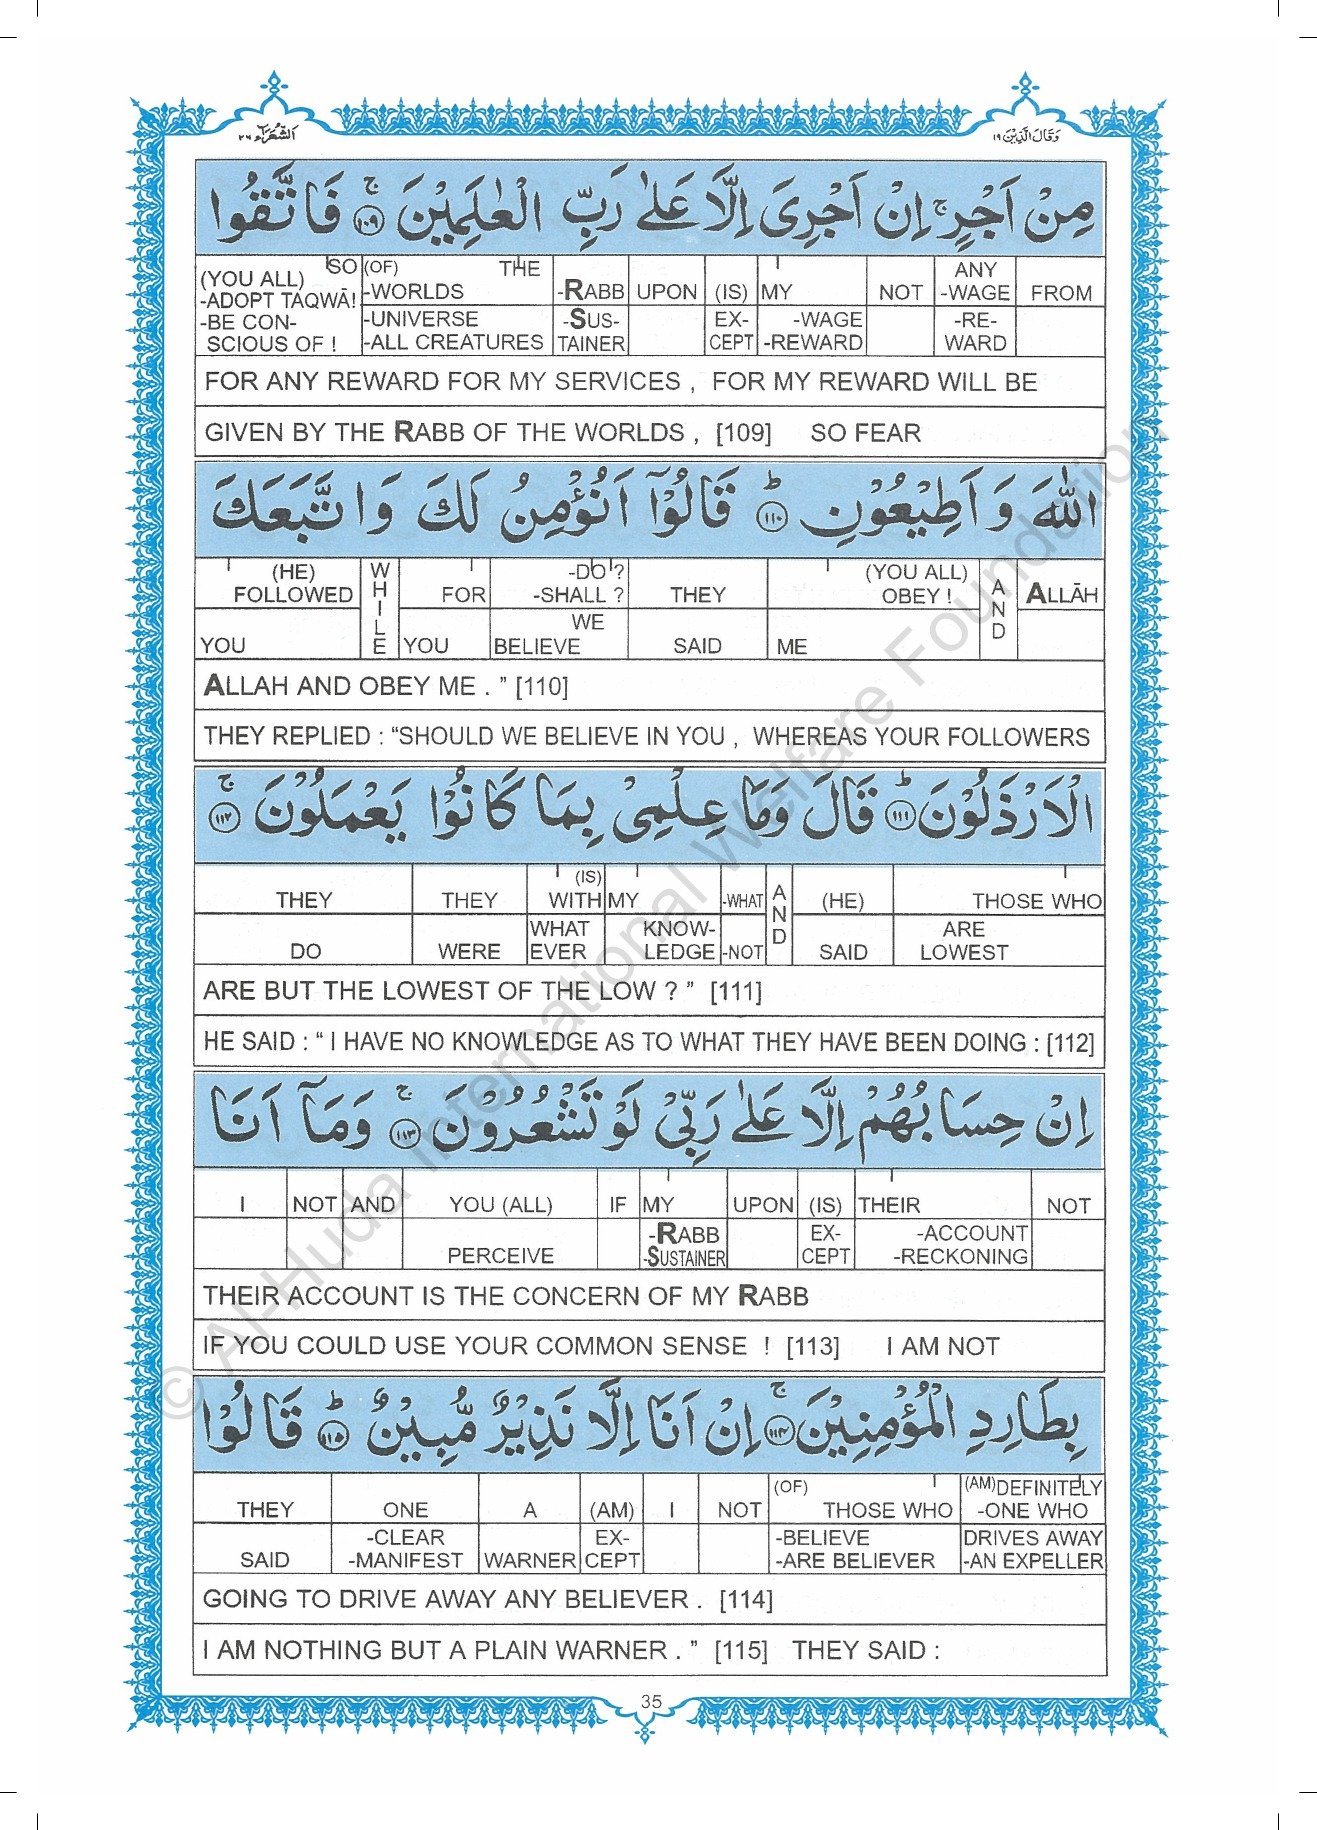 الشعراء ٢٦
وقال الذين ١٩
مِنْ اَجْرٍ ۚ اِنْ اَجْرِيَ اِلَّا عَلٰى رَبِّ الْعٰلَمِيْنَ ۚ ١٠٩ فَاتَّقُوا
(YOU ALL) SO (OF) THE ANY
-ADOPT TAQWĀ! -WORLDS -RABB UPON (IS) MY NOT -WAGE FROM
-BE CON- -UNIVERSE -SUS- EX- -WAGE -RE-
SCIOUS OF ! -ALL CREATURES TAINER CEPT -REWARD WARD
FOR ANY REWARD FOR MY SERVICES , FOR MY REWARD WILL BE
GIVEN BY THE RABB OF THE WORLDS , [109] SO FEAR
اللّٰهَ وَ اَطِيْعُوْنِ ؕ ١١٠ قَالُوْۤا اَنُؤْمِنُ لَكَ وَ اتَّبَعَكَ
(HE) WHILE -DO ? (YOU ALL) AND
FOLLOWED FOR -SHALL ? THEY OBEY ! ALLĀH
WE
YOU YOU BELIEVE SAID ME
ALLAH AND OBEY ME . ” [110]
THEY REPLIED : “SHOULD WE BELIEVE IN YOU , WHEREAS YOUR FOLLOWERS
الْاَرْذَلُوْنَ ؕ ١١١ قَالَ وَمَا عِلْمِيْ بِمَا كَانُوْا يَعْمَلُوْنَ ۚ ١١٢
(IS) AND
THEY THEY WITH MY -WHAT (HE) THOSE WHO
WHAT KNOW- ARE
DO WERE EVER LEDGE -NOT SAID LOWEST
ARE BUT THE LOWEST OF THE LOW ? ” [111]
HE SAID : “ I HAVE NO KNOWLEDGE AS TO WHAT THEY HAVE BEEN DOING : [112]
اِنْ حِسَابُهُمْ اِلَّا عَلٰى رَبِّيْ لَوْ تَشْعُرُوْنَ ۚ ١١٣ وَمَاۤ اَنَا
I NOT AND YOU (ALL) IF MY UPON (IS) THEIR NOT
-RABB EX- -ACCOUNT
PERCEIVE -SUSTAINER CEPT -RECKONING
THEIR ACCOUNT IS THE CONCERN OF MY RABB
IF YOU COULD USE YOUR COMMON SENSE ! [113] I AM NOT
بِطَارِدِ الْمُؤْمِنِيْنَ ۚ ١١٤ اِنْ اَنَا اِلَّا نَذِيْرٌ مُّبِيْنٌ ؕ ١١٥ قَالُوْا
(OF) (AM)DEFINITELY
THEY ONE A (AM) I NOT THOSE WHO -ONE WHO
-CLEAR EX- -BELIEVE DRIVES AWAY
SAID -MANIFEST WARNER CEPT -ARE BELIEVER -AN EXPELLER
GOING TO DRIVE AWAY ANY BELIEVER . [114]
I AM NOTHING BUT A PLAIN WARNER . ” [115] THEY SAID :
35
© Al-Huda International Welfare Foundation